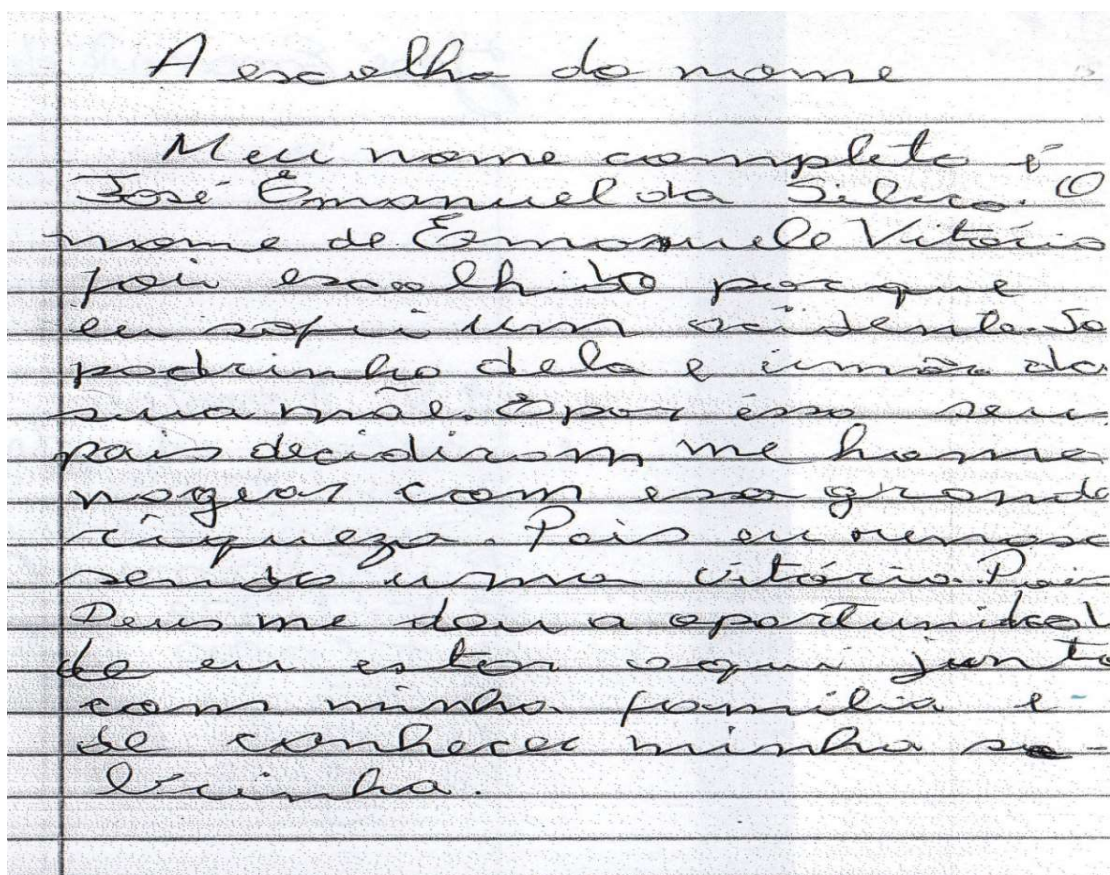 A escolha do nome
Meu nome completo é
José Emanuel da Silva. O
nome de Emanuele Vitória
foi escolhido porque
eu sofri um acidente. So
padrinho dela e irmão da
sua mãe. E por isso seu
pais decidiram me home
nagear com esa grande
riqueza. Pois eu
sendo uma vitória. Pois
Deus me dou a oportunidad
de eu estar aqui junto
com minha família e
de conhecer minha so-
brinha.